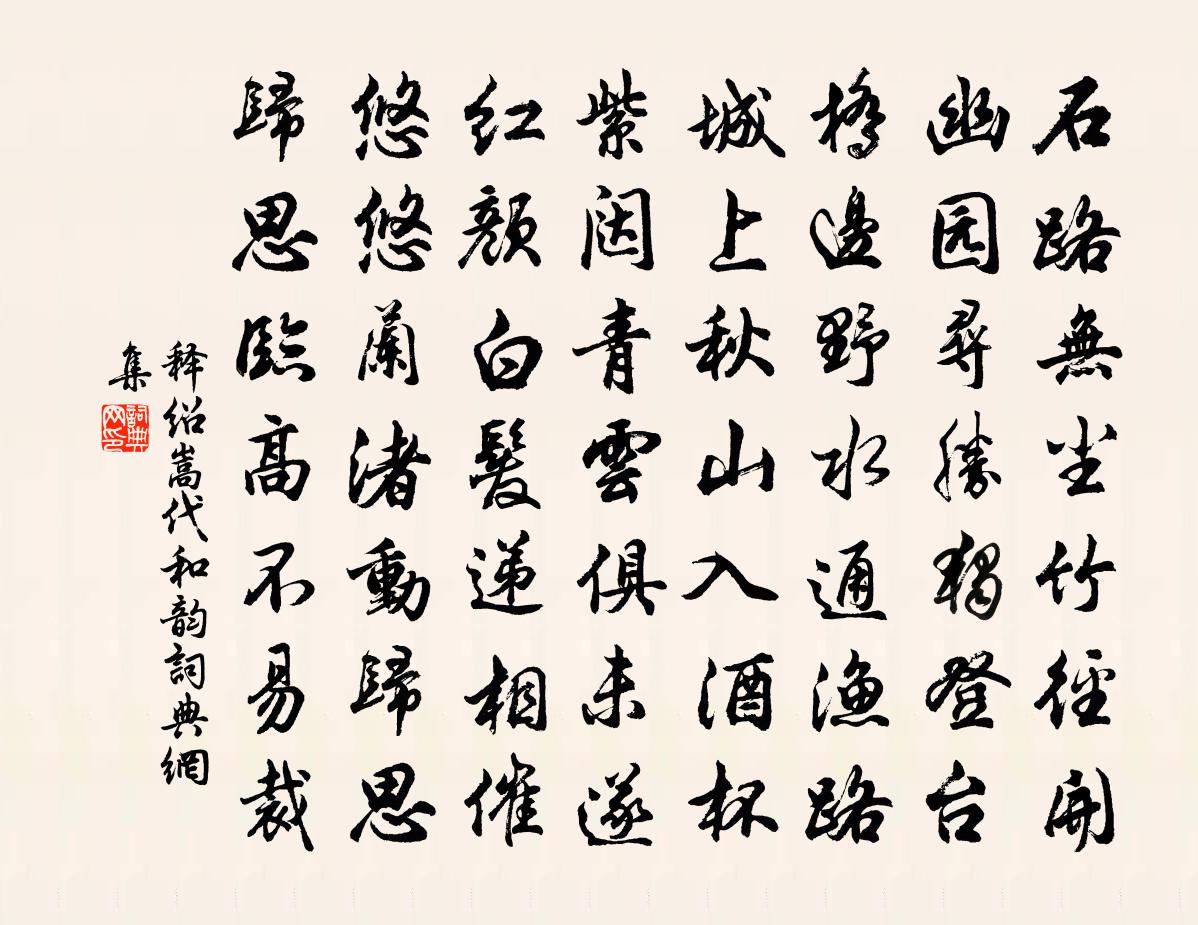 石路無尘竹徑開
幽园尋勝獨登台
橋邊野水通漁路
城上秋山入酒杯
紫闼青雲俱未遂
红颜白髮递相催
悠悠蘭渚動歸思
歸思臨高不易裁
释绍嵩代和韵詞典網
集
詞典网印